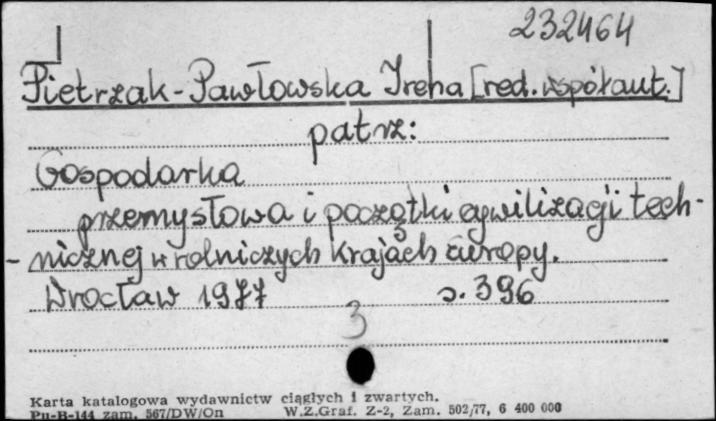 232464
Pietrzak-Pawłowska Irena [red. współaut.]
patrz:
Gospodarka
przemysłowa i początki cywilizacji tech-
-nicznej w rolniczych krajach Europy.
Wrocław 1977 s. 396
3
Karta katalogowa wydawnictw ciągłych i zwartych.
Pu-B-144 zam. 567/DW/On W.Z.Graf. Z-2, Zam. 502/77, 6 400 000